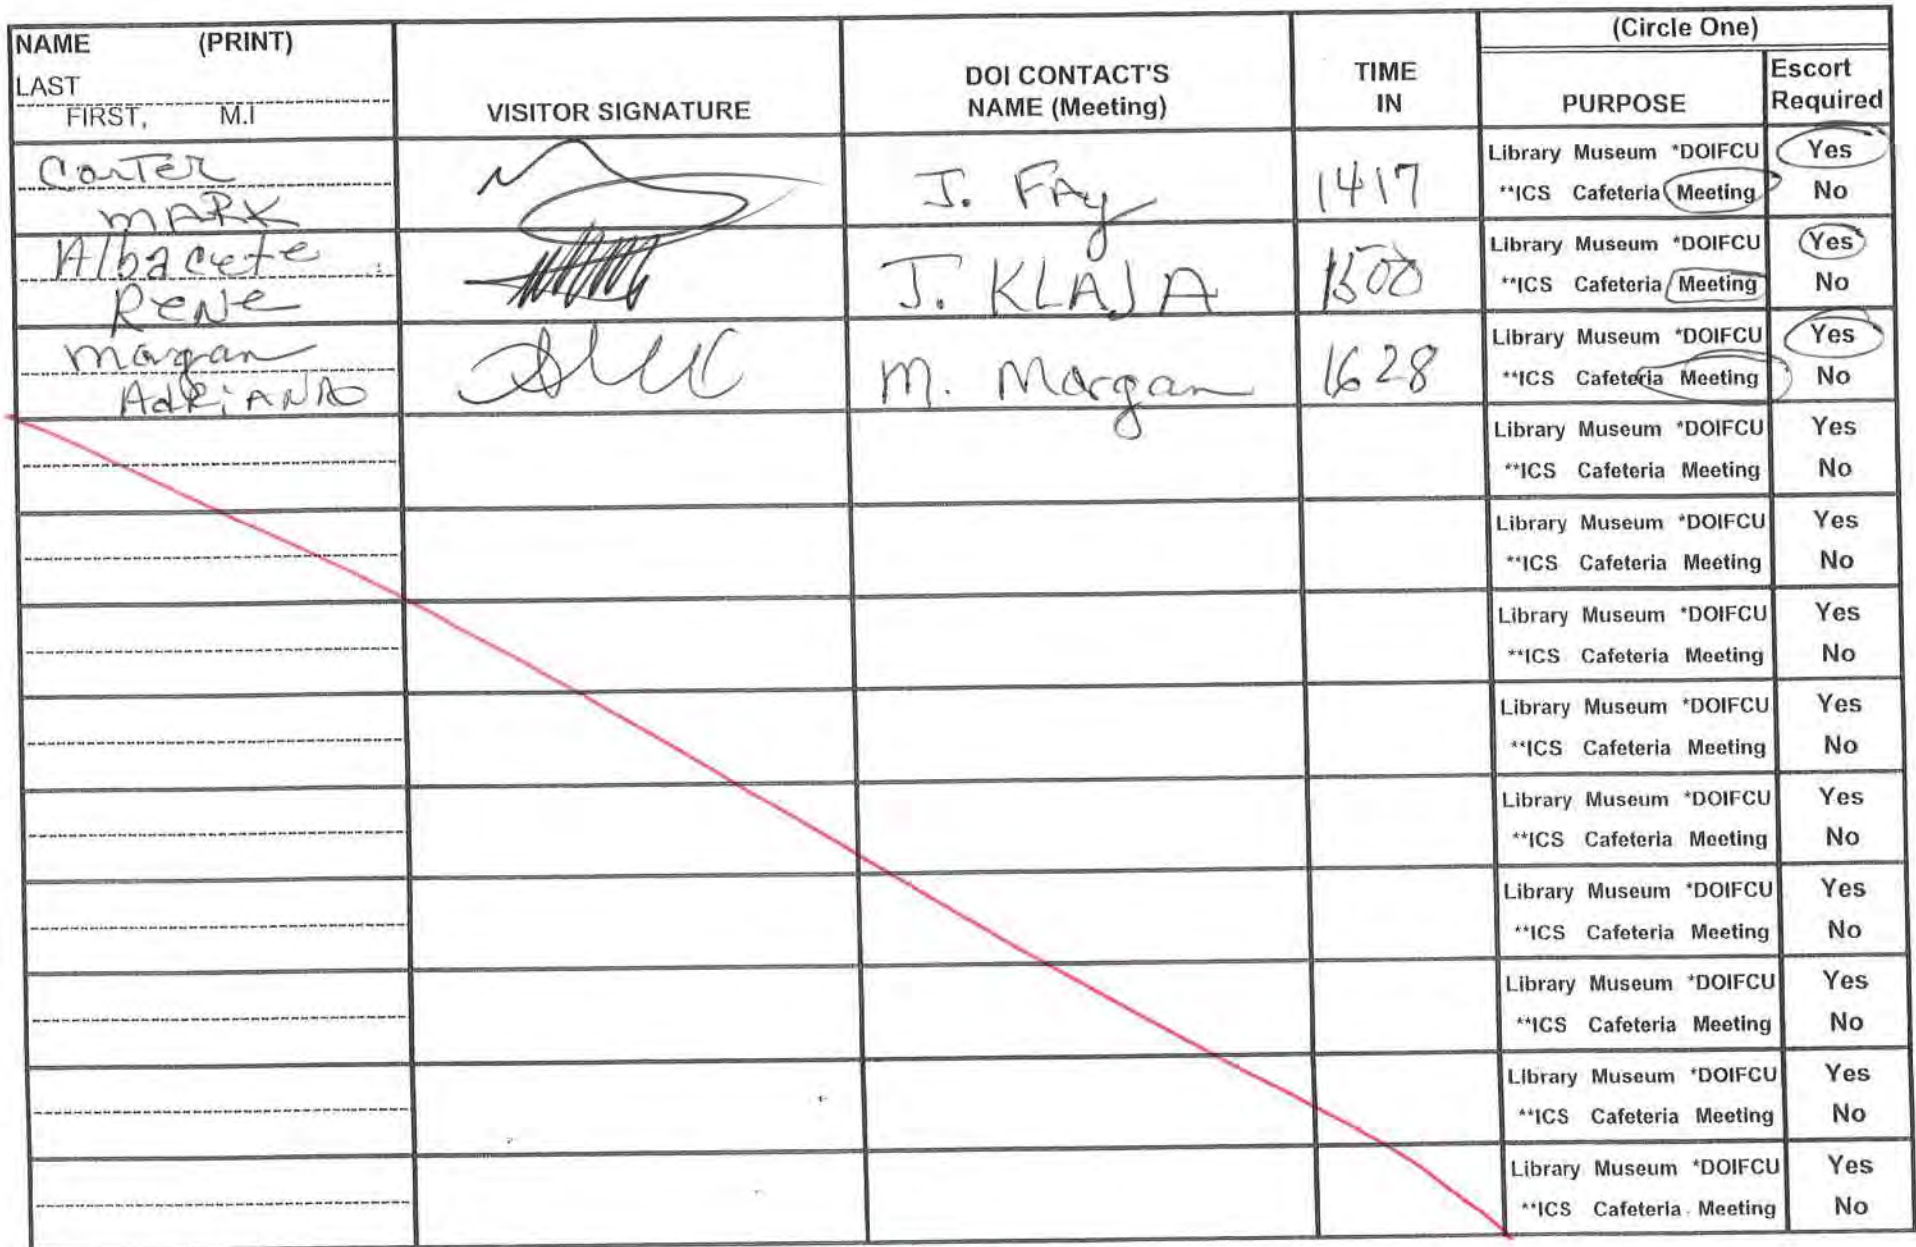 (Circle One)
NAME (PRINT)
LAST
FIRST, M.I
VISITOR SIGNATURE
DOI CONTACT'S
NAME (Meeting)
TIME
IN
PURPOSE
Escort
Required
Carter
MARK
J. FAy
1417
Library Museum *DOIFCU Yes
**ICS Cafeteria Meeting No
Albacete
RENE
J. KLAJA
1500
Library Museum *DOIFCU Yes
**ICS Cafeteria Meeting No
Morgan
AdRiANA
M. Morgan
1628
Library Museum *DOIFCU Yes
**ICS Cafeteria Meeting No
Library Museum *DOIFCU Yes
**ICS Cafeteria Meeting No
Library Museum *DOIFCU Yes
**ICS Cafeteria Meeting No
Library Museum *DOIFCU Yes
**ICS Cafeteria Meeting No
Library Museum *DOIFCU Yes
**ICS Cafeteria Meeting No
Library Museum *DOIFCU Yes
**ICS Cafeteria Meeting No
Library Museum *DOIFCU Yes
**ICS Cafeteria Meeting No
Library Museum *DOIFCU Yes
**ICS Cafeteria Meeting No
Library Museum *DOIFCU Yes
**ICS Cafeteria Meeting No
Library Museum *DOIFCU Yes
**ICS Cafeteria Meeting No